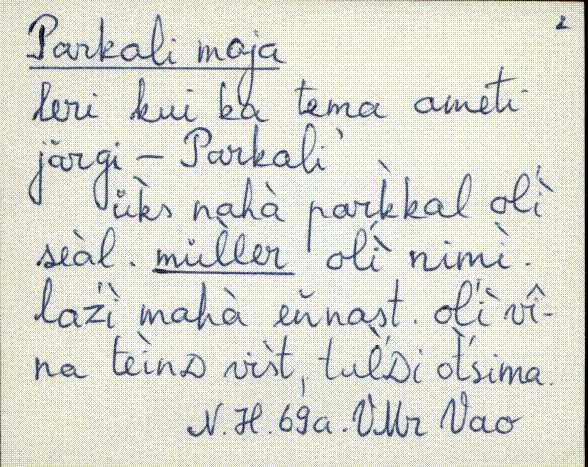 2
Parkali maja
leri kui ka tema ameti
järgi – Parkali
ǜks nahà par̀kkal oĺì
seàl. mǜller oĺì nimì.
laźì mahà eǹnast. oĺì vî-
na tèinD vìst, tuĺ̀Di òt́sima.
N.H. 69a. VMr Vao